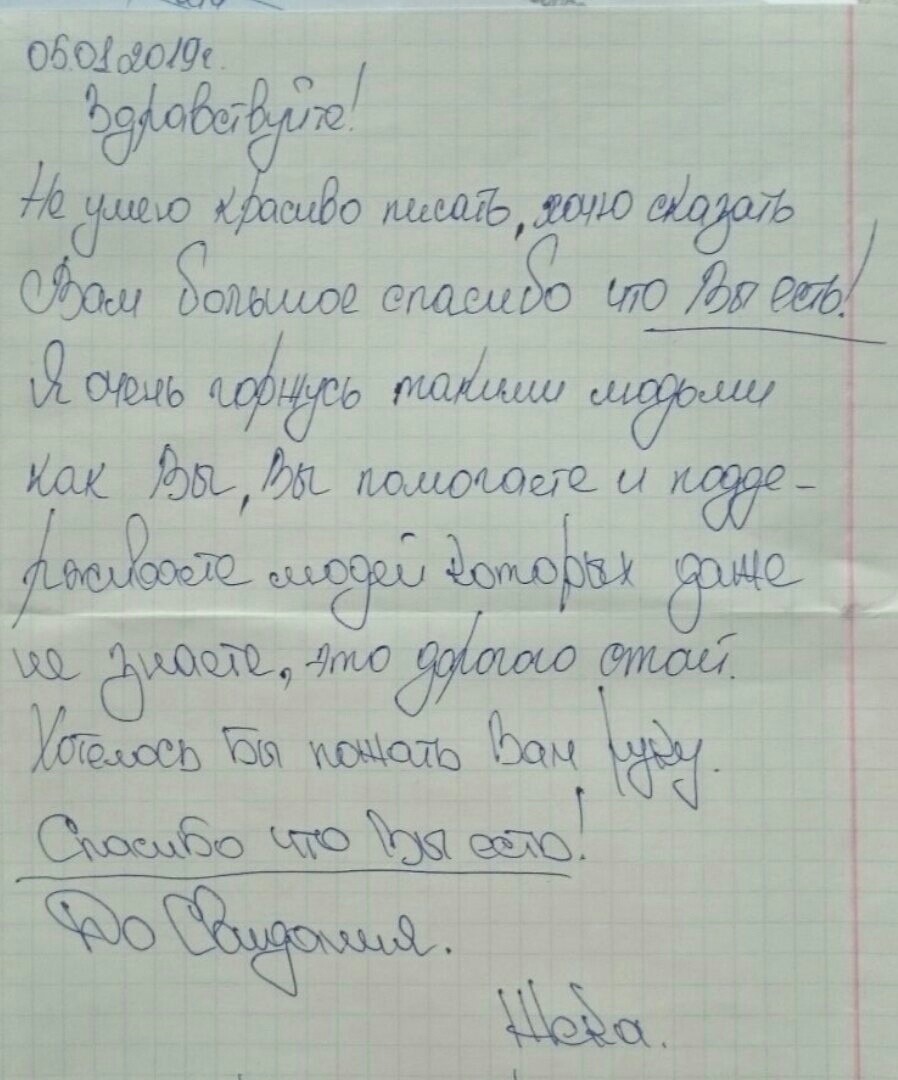 05.01.2019г.
Здравствуйте!
Не умею красиво писать, хочю сказать
Вам большое спасибо что Вы есть!
Я очень горжусь такими людьми
как Вы, Вы помогаете и подде-
рживаете людей которых даже
не знаете, это дорогого стоит.
Хотелось бы пожать Вам руку.
Спасибо что Вы есть!
До Свидания.
Жека.